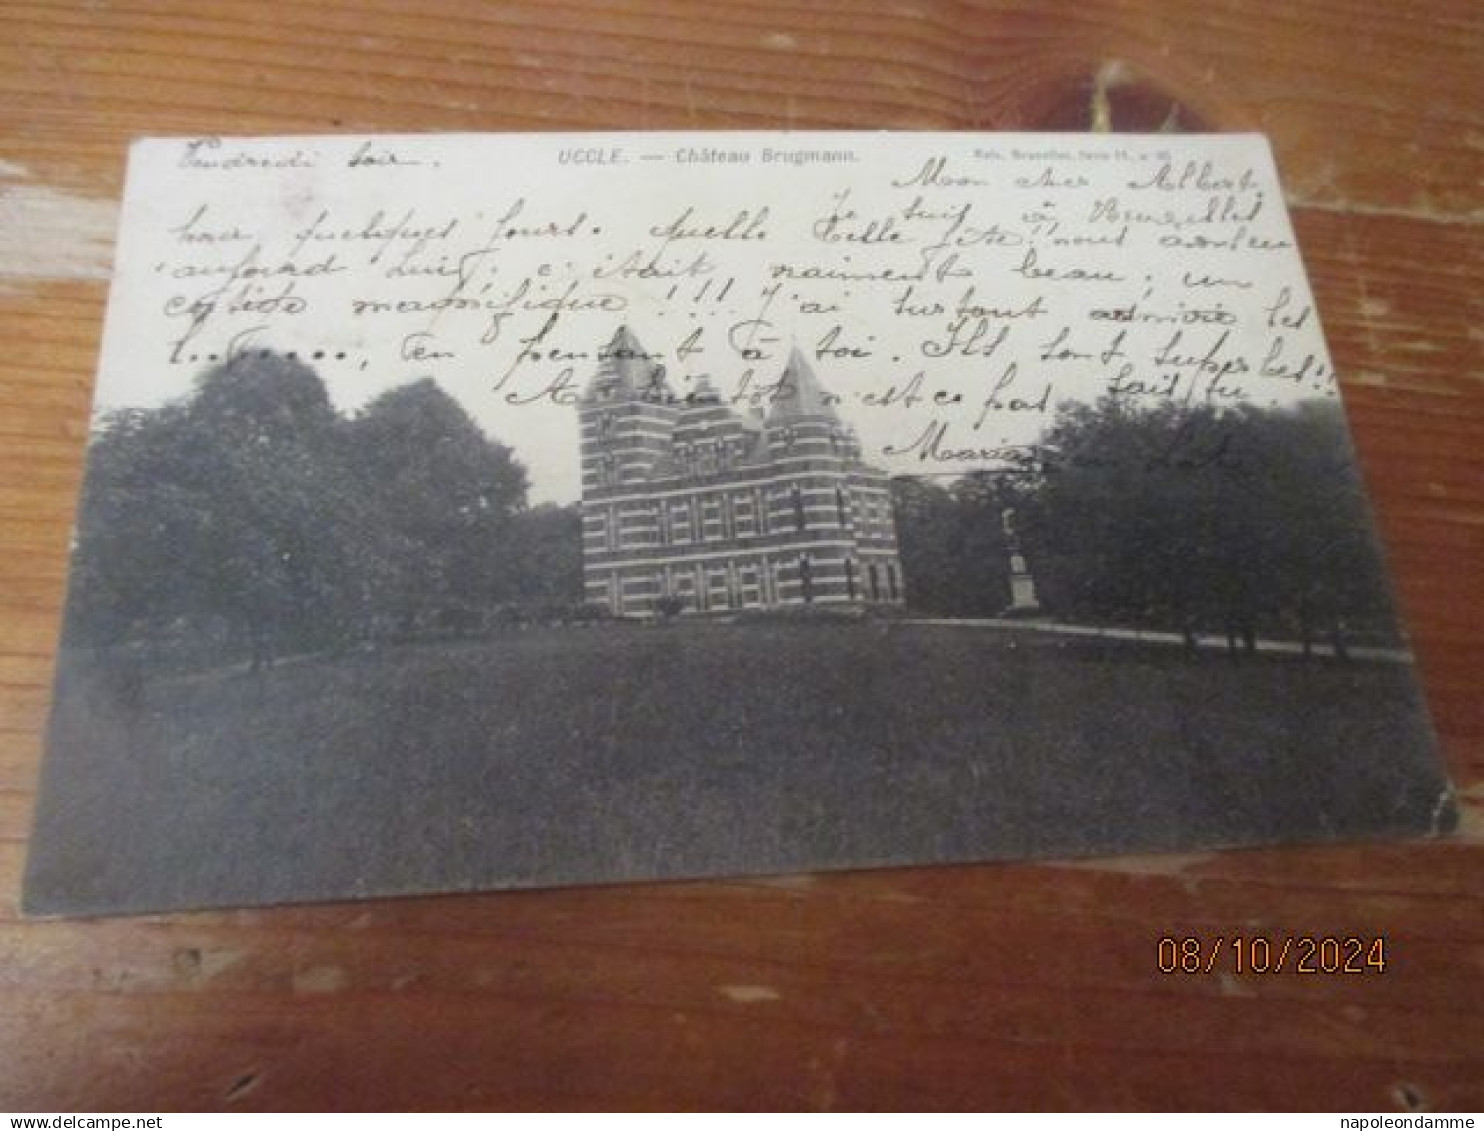 Vendredi soir.
UCCLE. — Château Brugmann.
Nels, Bruxelles, Serie 11, n
Mon cher Albert,
Je suis à Bruxelles
pour quelques jours. Quelle belle fête! nous avons eu
aujourd'hui. c'était vraiment beau; un
magnifique!!! J'ai surtout admiré les
l.........., en pensant à toi. Ils sont superbes!!
A bientôt n'est ce pas sais tu.
Maria
08/10/2024
napoleondamme